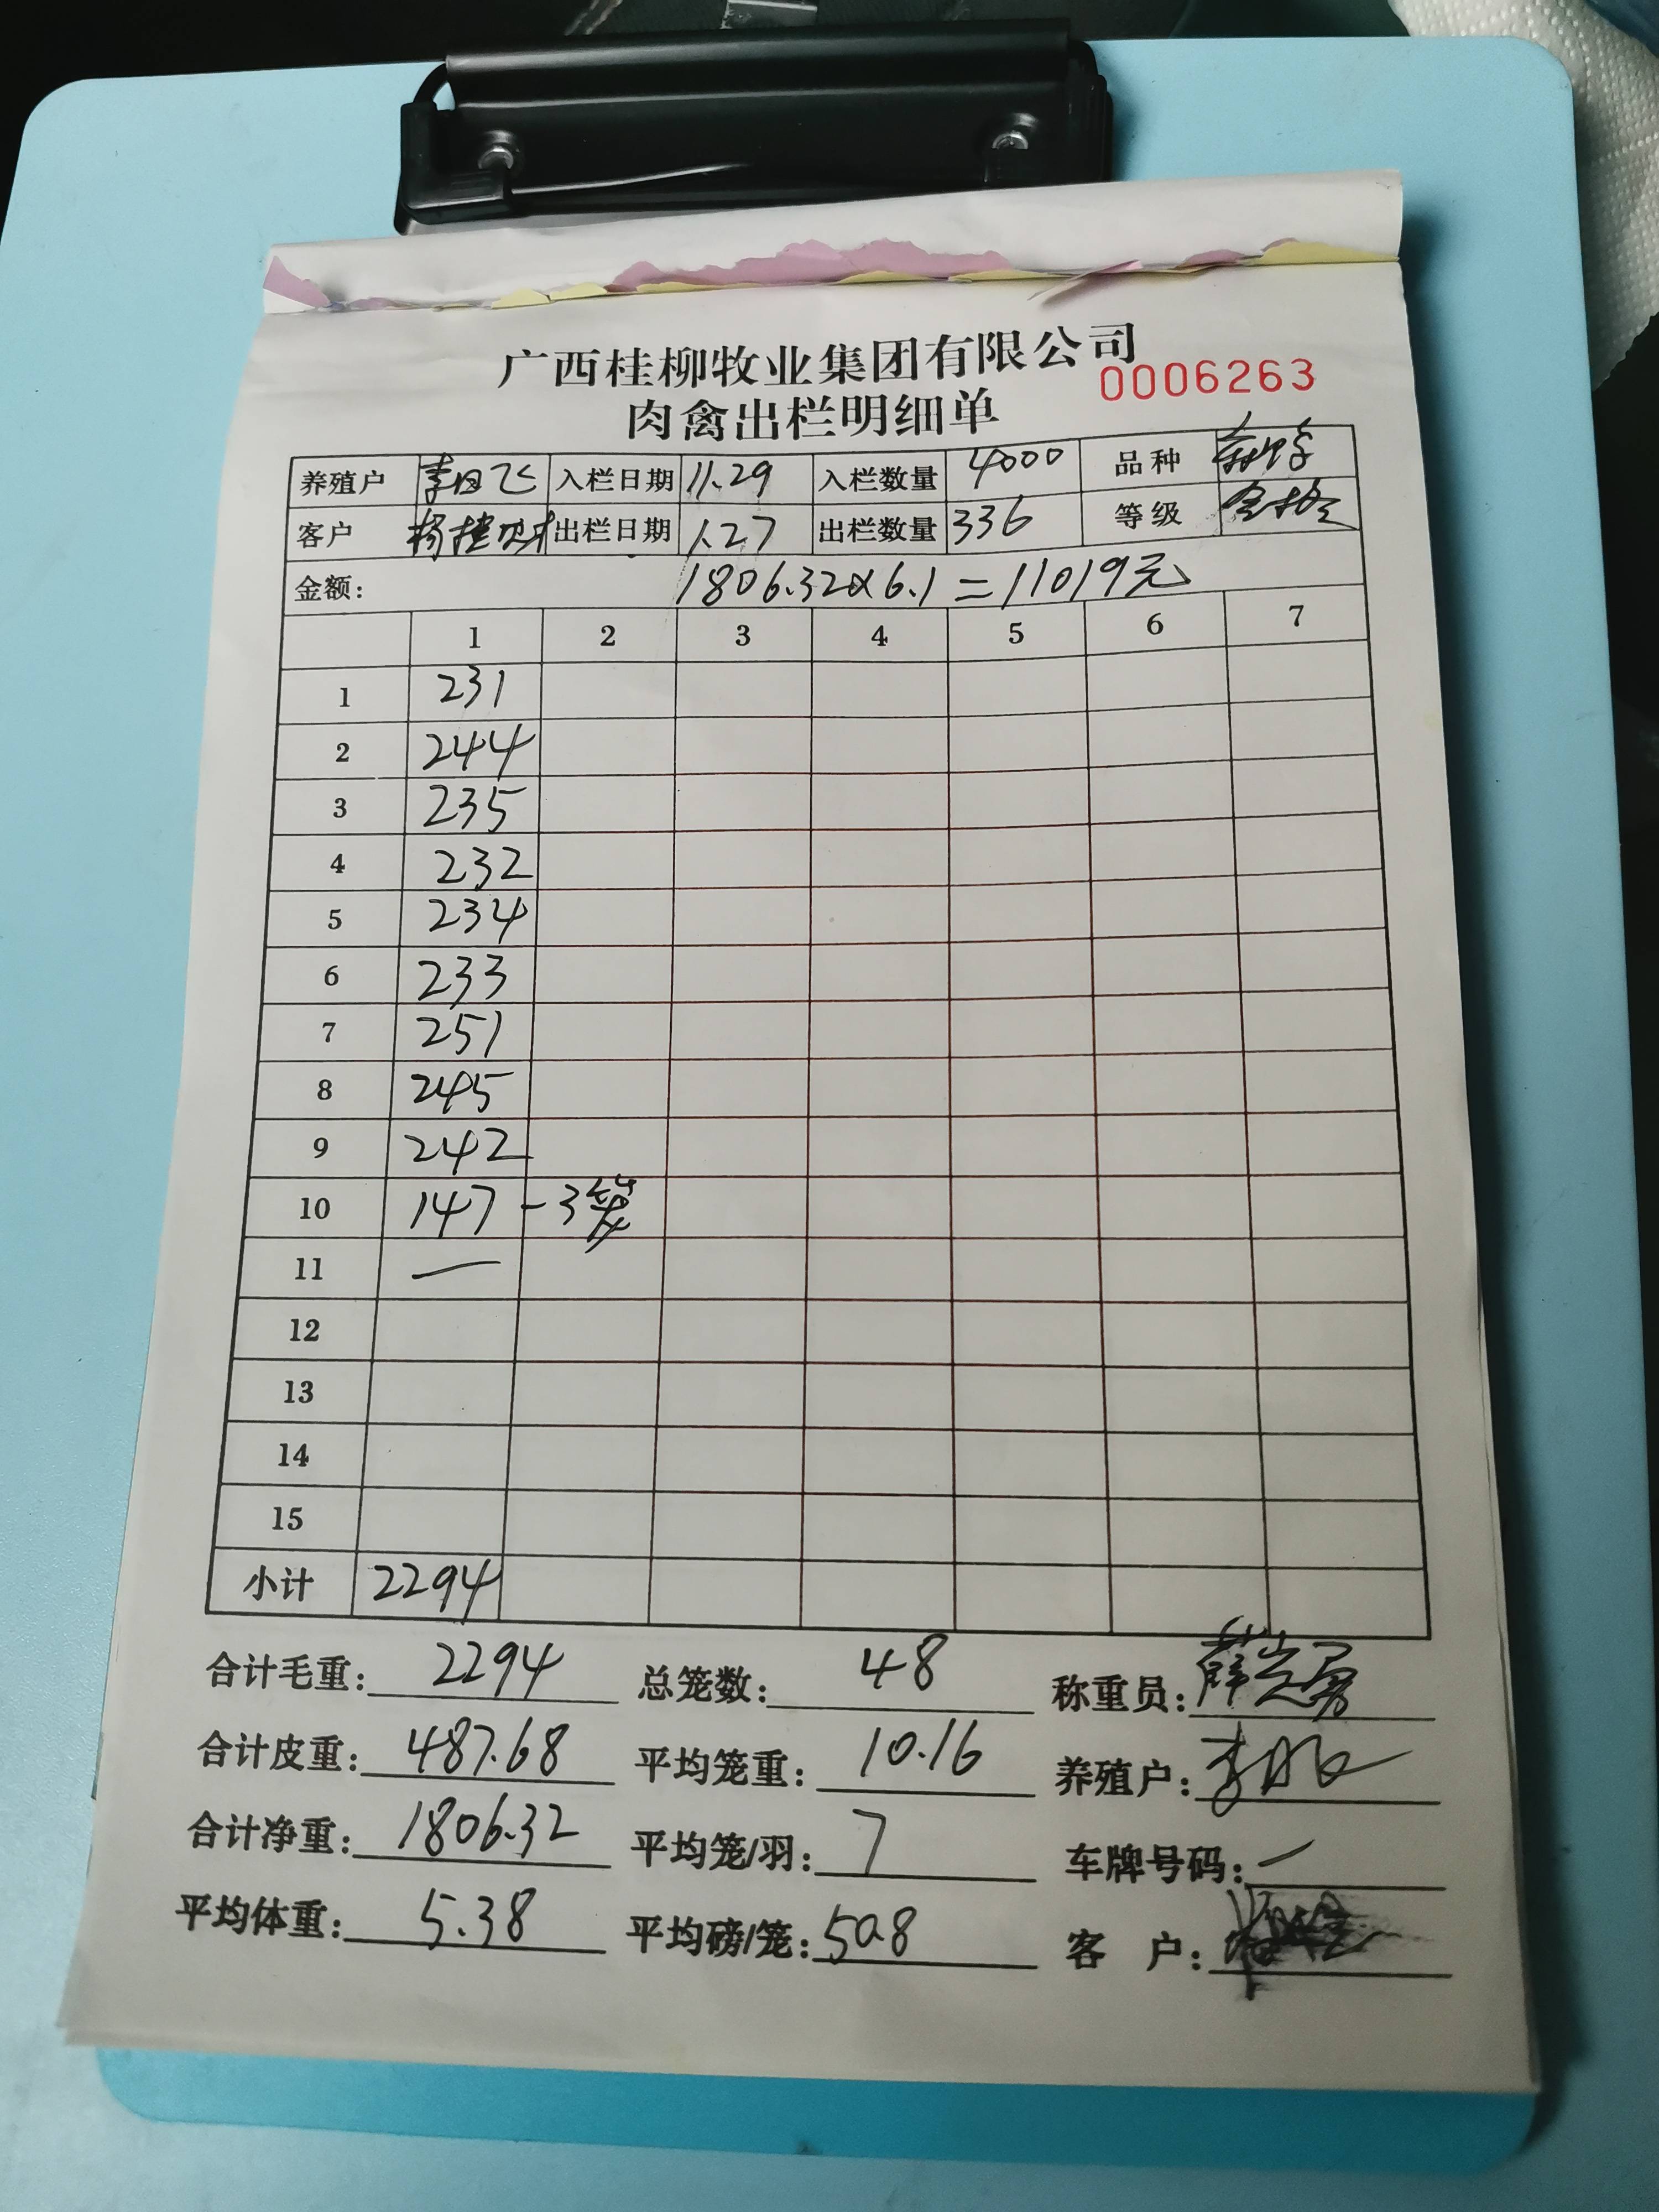 广西桂柳牧业集团有限公司
0006263
肉禽出栏明细单
养殖户 李日飞 入栏日期 11.29 入栏数量 4000 品种
客户 出栏日期 1.27 出栏数量 336 等级 合格
金额: 1806.32×6.1=11019元
1 2 3 4 5 6 7
1 231
2 244
3 235
4 232
5 234
6 233
7 251
8 245
9 242
10 147 -3笼
11 —
12
13
14
15
小计 2294
合计毛重: 2294 总笼数: 48 称重员:
合计皮重: 487.68 平均笼重: 10.16 养殖户:
合计净重: 1806.32 平均笼/羽: 7 车牌号码: —
平均体重: 5.38 平均磅/笼: 50.8 客 户: